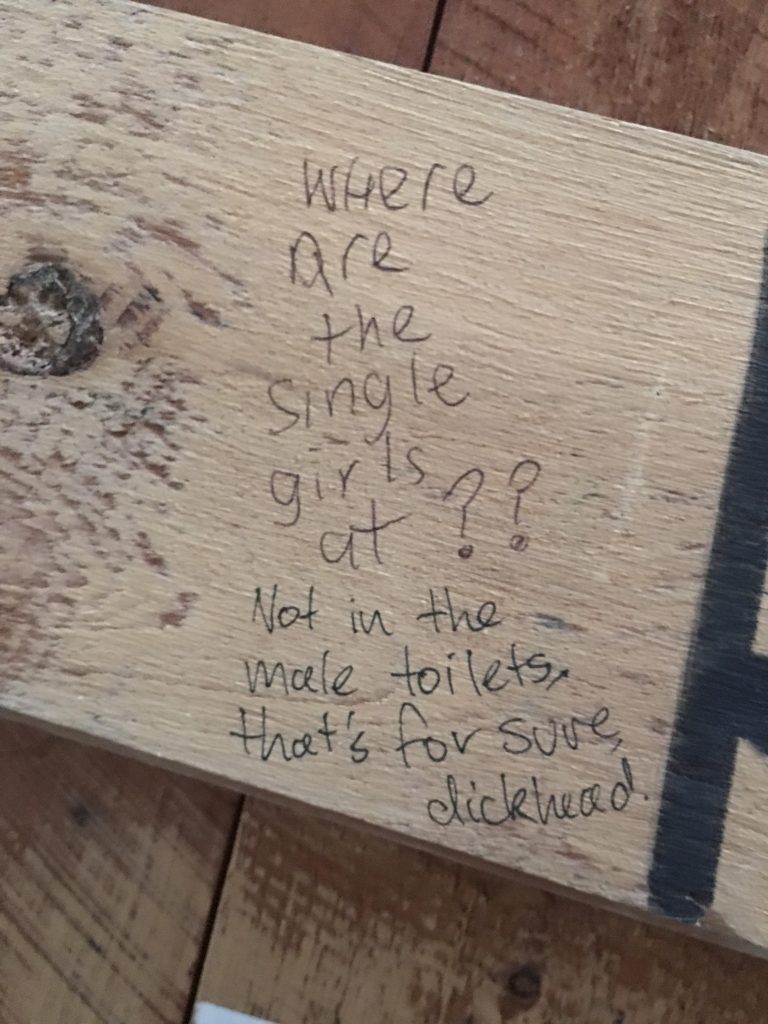 WHere
Are
the
single
girls
at ??
Not in the
male toilets,
that's for sure,
dickhead.